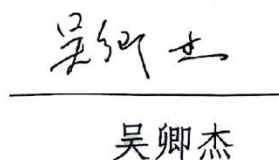 吴卿杰
吴卿杰